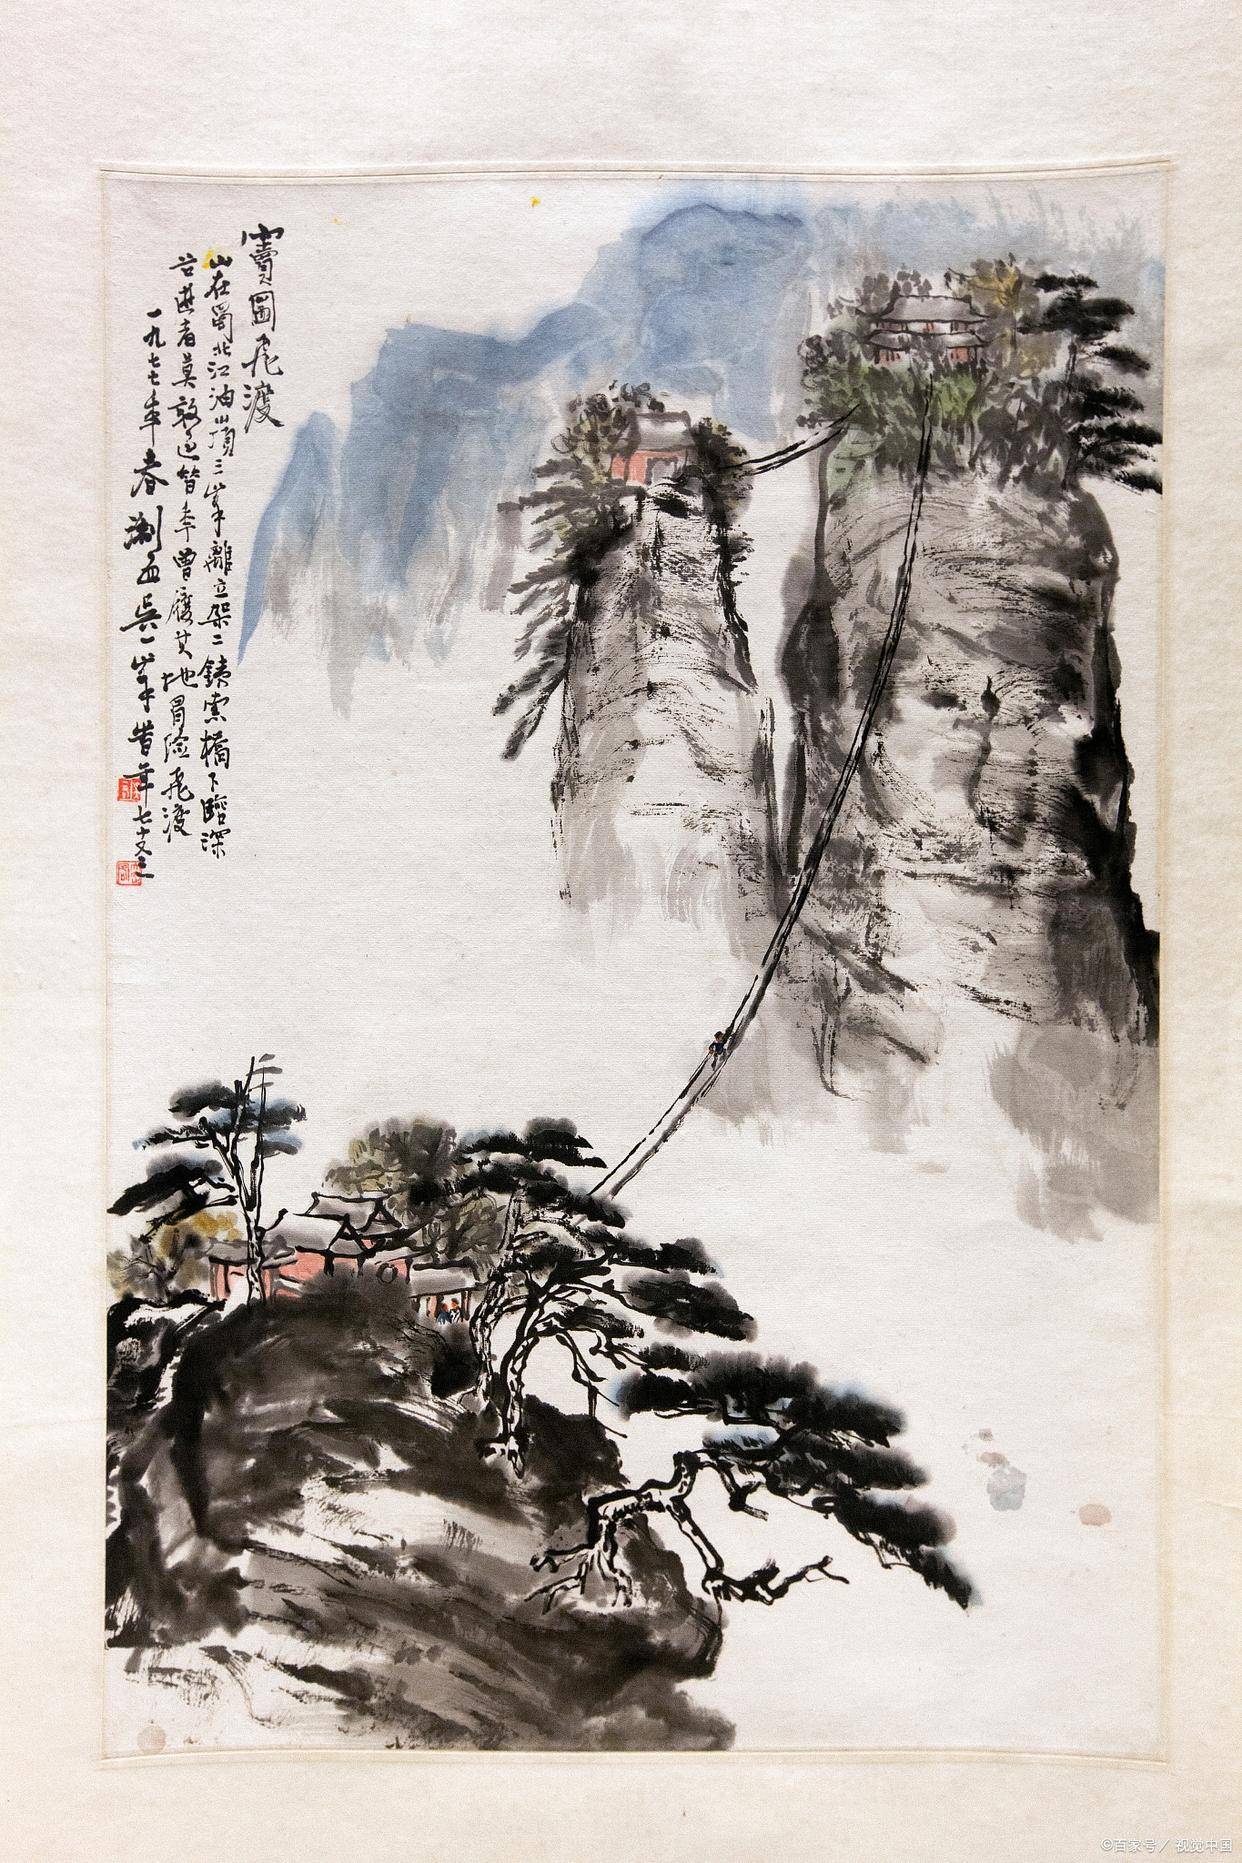 竇圌飛渡
山在蜀北江油山頂三峯離立架二鉄索橋下臨深
谷遊者莫敢過昔年曾履其地冒險飛渡
一九七七年春渊血吳一峯昔年七十又二
©百家号／视觉中国